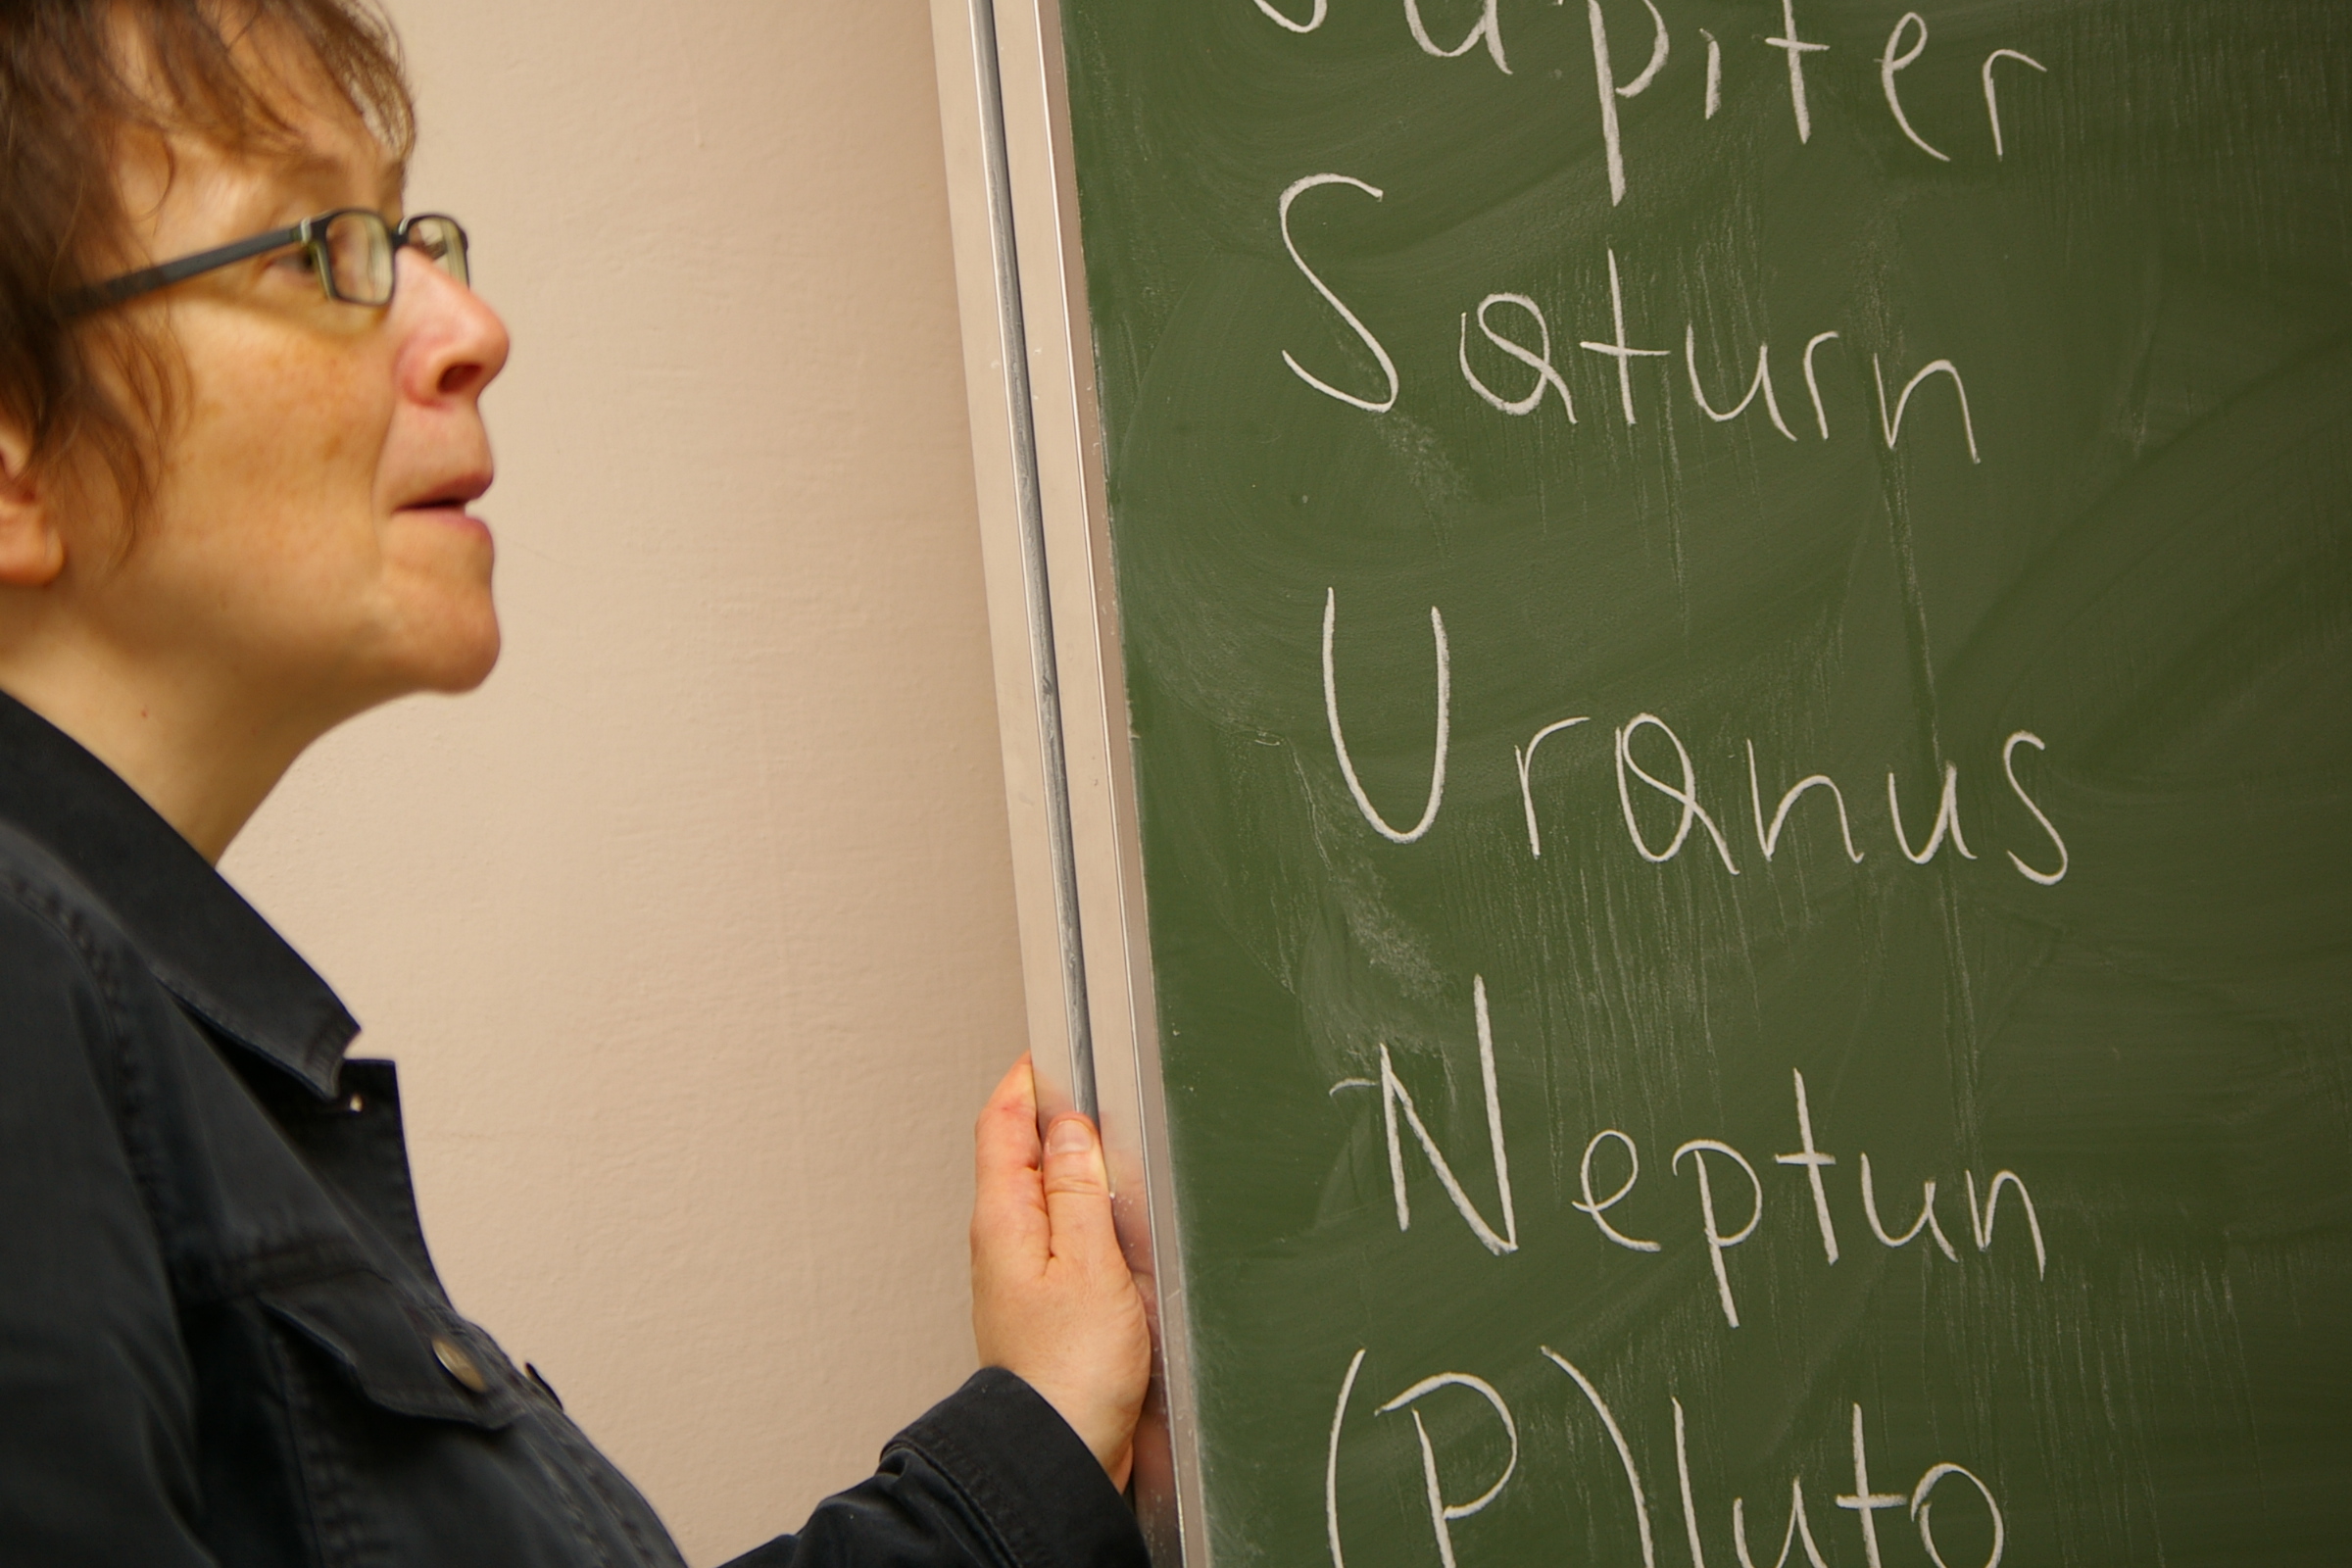 Jupiter
Saturn
Uranus
Neptun
(P)luto